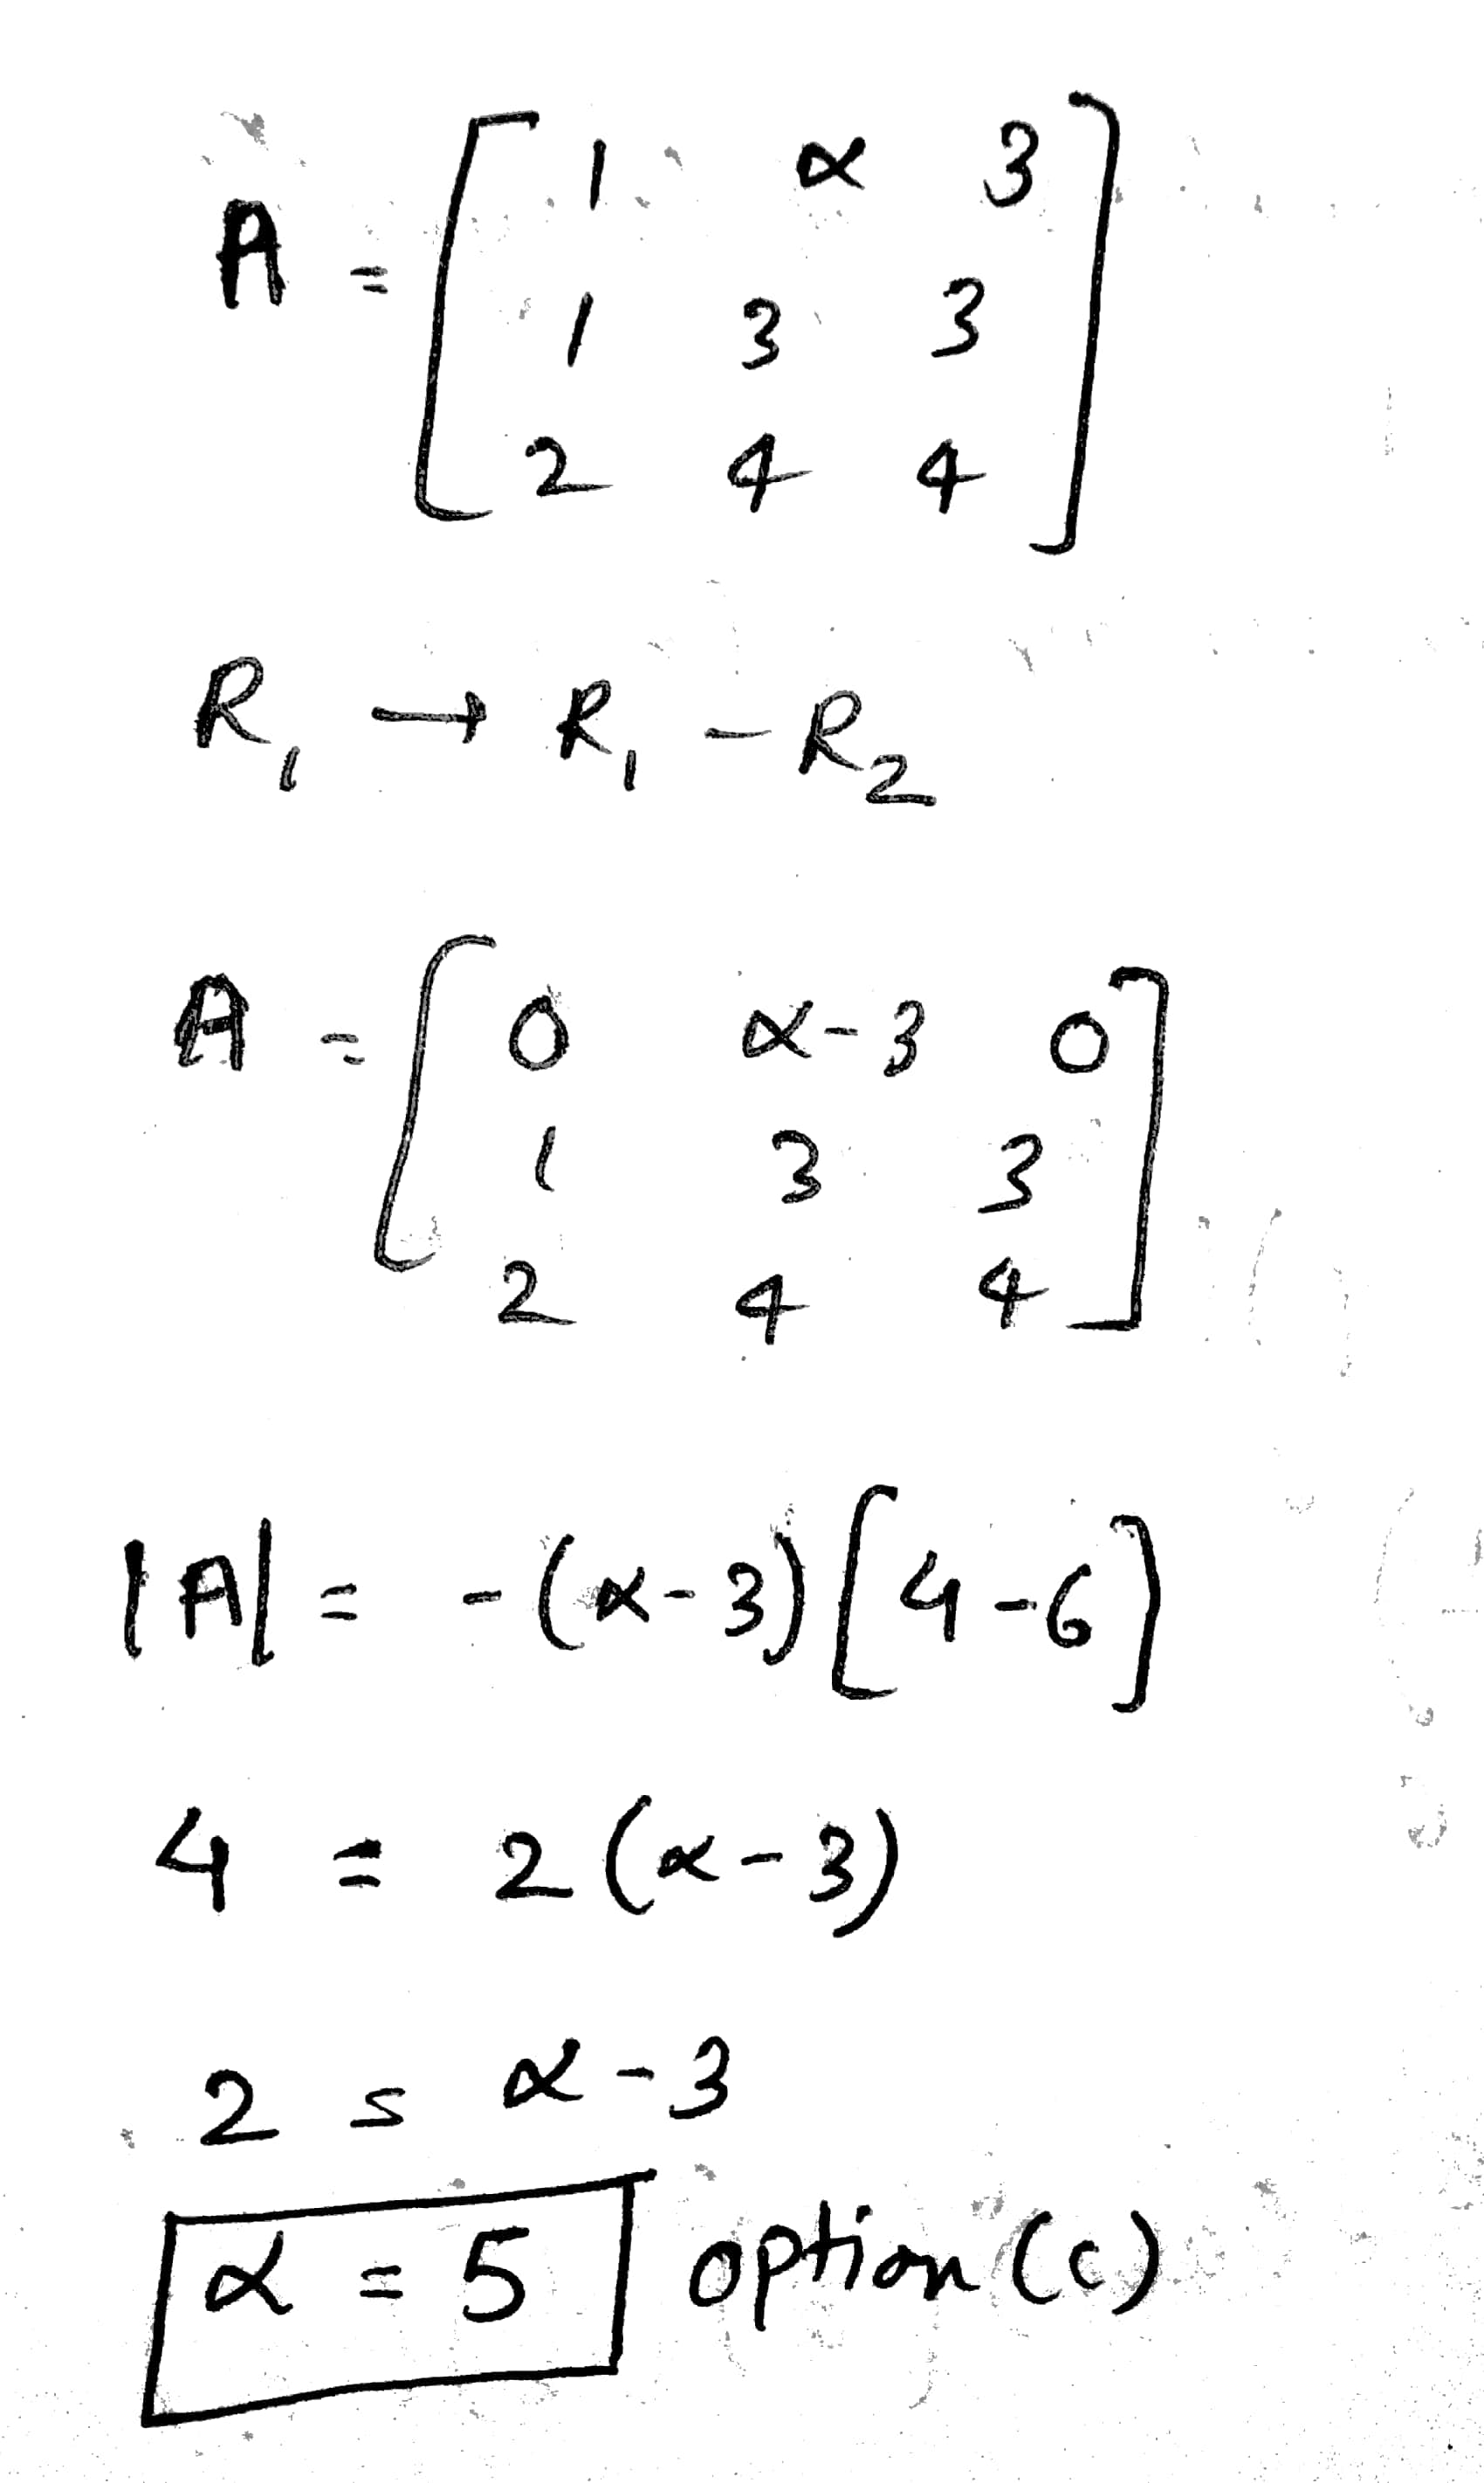 A = [ 1 α 3
1 3 3
2 4 4 ]
R₁ → R₁ - R₂
A = [ 0 α-3 0
1 3 3
2 4 4 ]
|A| = -(α-3)[4-6]
4 = 2(α-3)
2 = α-3
α = 5 option (c)